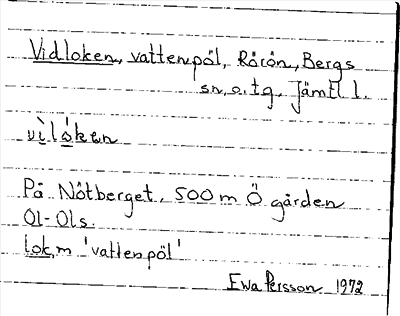 Vidloken, vattenpöl, Rörön, Bergs
sn. o. tg. Jämtl l.
vìlóken
På Nötberget, 500 m Ö gården
Ol-Ols.
lok, m 'vattenpöl'
Ewa Persson 1972